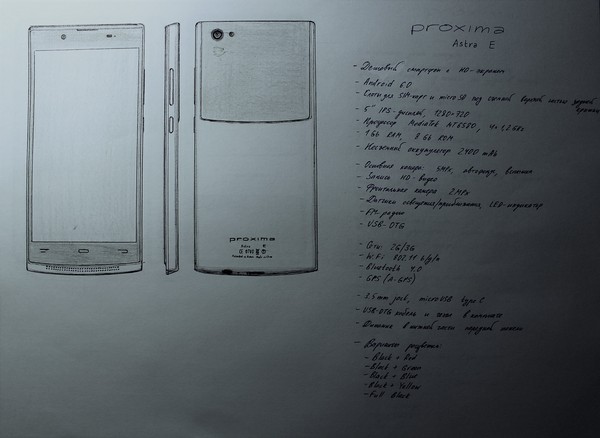 proxima
Astra E
- Дешёвый смартфон с HD-экраном
- Android 6.0
- Слоты для SIM-карт и microSD под съёмной верхней частью задней крышки
- 5" IPS-дисплей, 1280×720
- Процессор MediaTek MT6580, 4×1,2 GHz
- 1 Gb RAM, 8 Gb ROM
- Несъёмный аккумулятор 2400 mAh
- Основная камера: 8MPx, автофокус, вспышка
- Запись HD-видео
- Фронтальная камера 2MPx
- Датчики освещения/приближения, LED-индикатор
- FM-радио
- USB-OTG
- Сети: 2G/3G
- Wi-Fi 802.11 b/g/n
- Bluetooth 4.0
- GPS (A-GPS)
- 3.5mm jack, microUSB type C
- USB-OTG кабель и чехол в комплекте
- Динамик в нижней части передней панели
- Варианты расцветки:
- Black + Red
- Black + Green
- Black + Blue
- Black + Yellow
- Full Black
proxima
Astra E